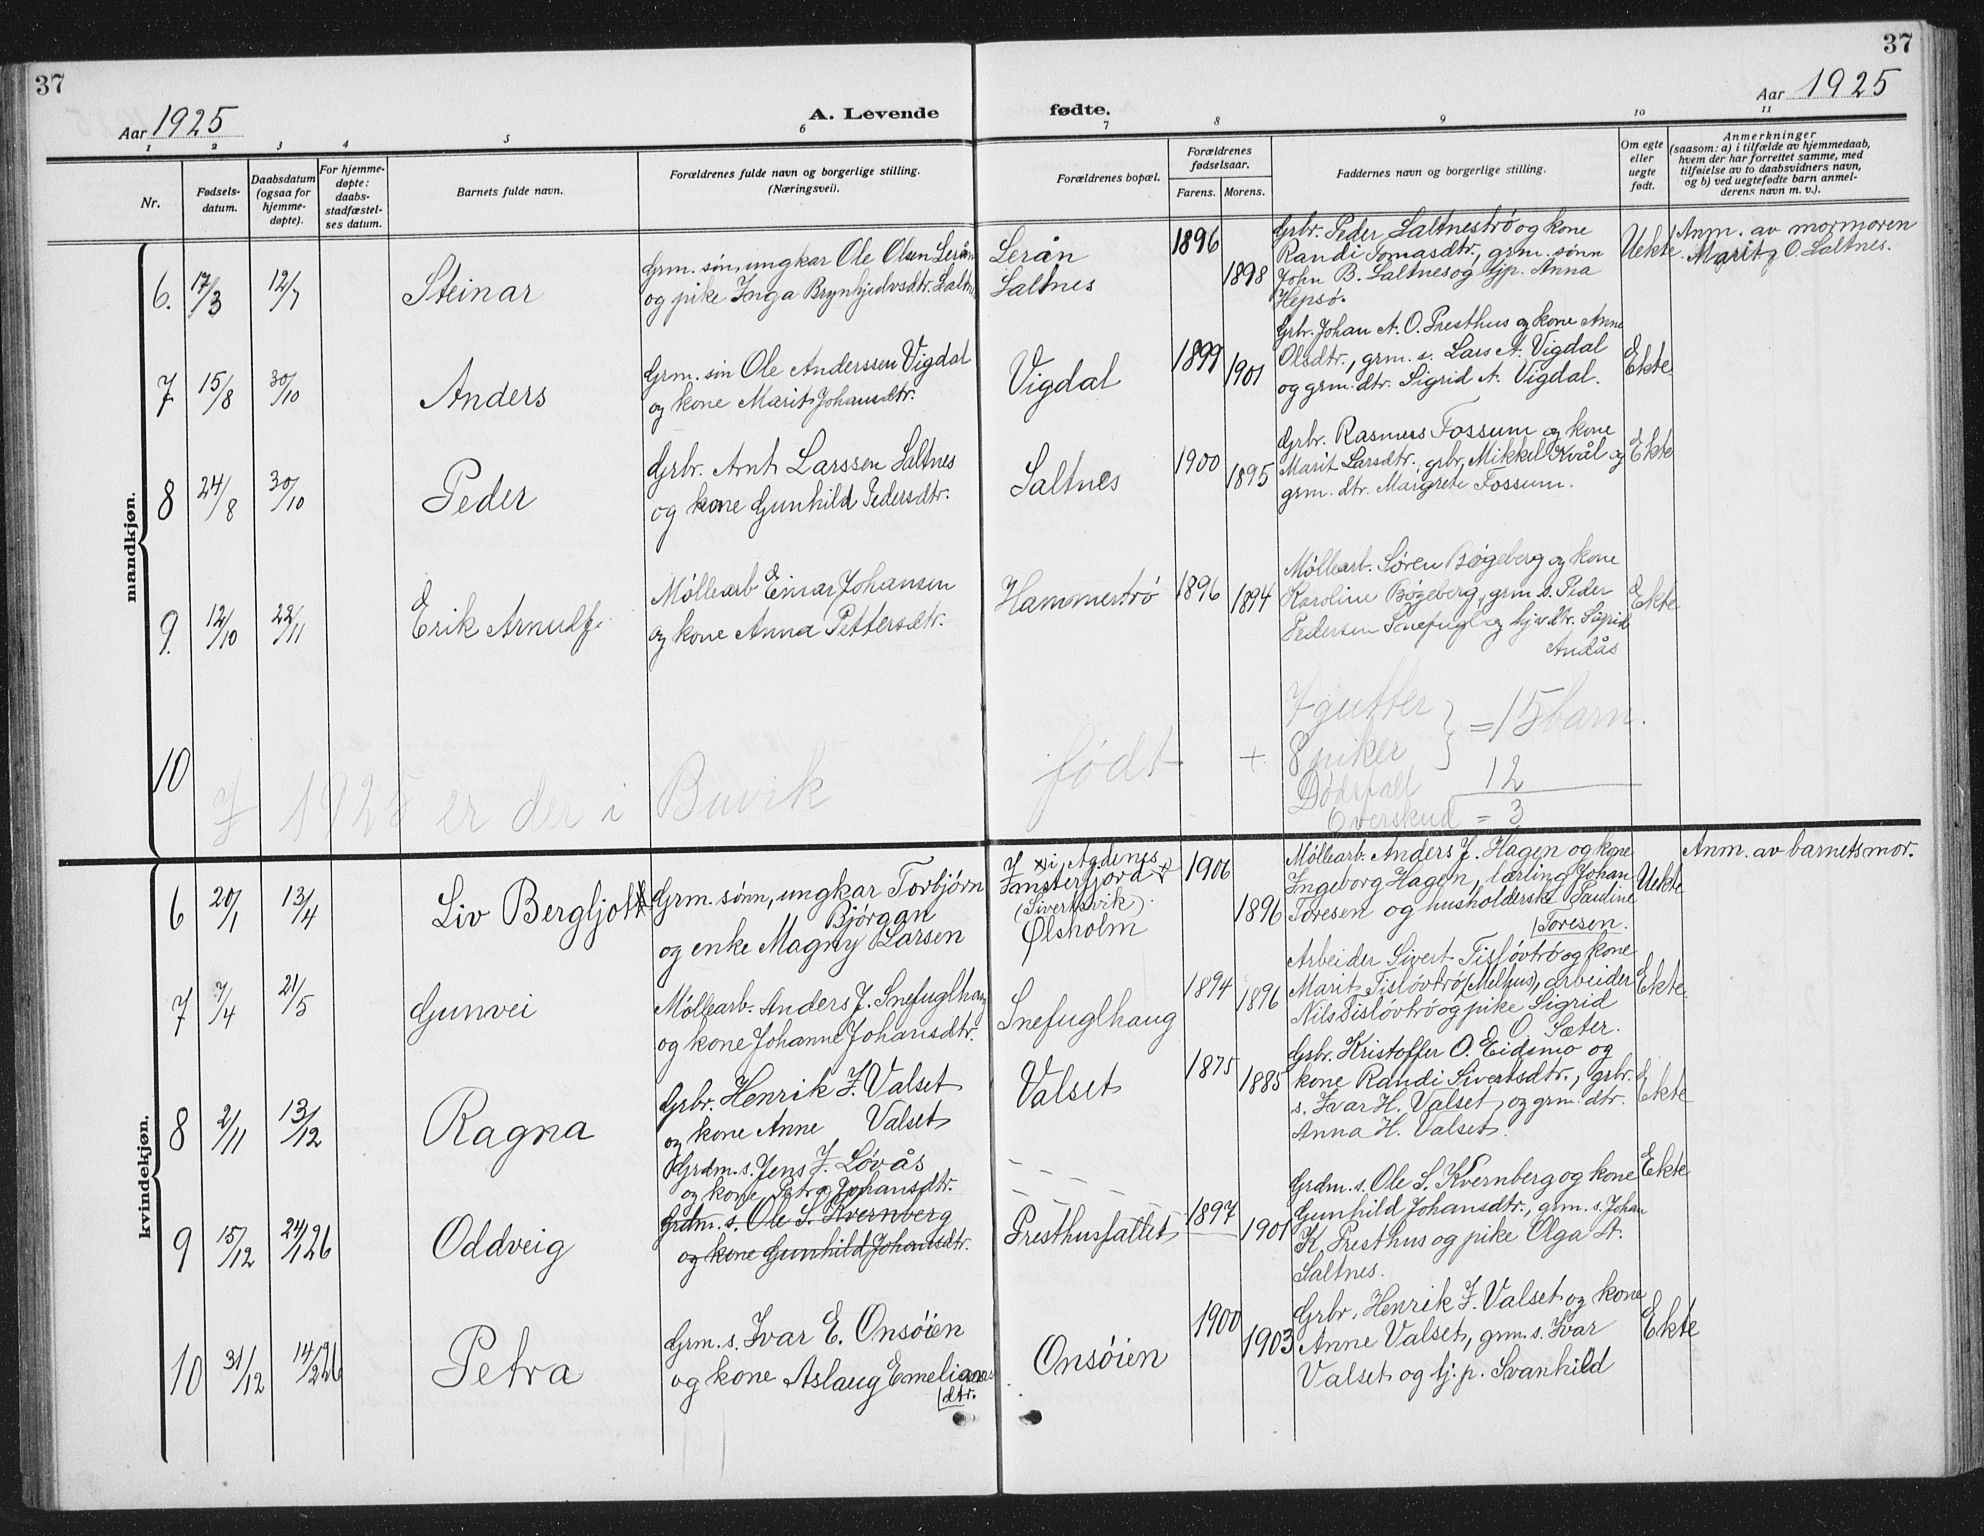 37
37
Aar 1925
A. Levende fødte.
Aar 1925
1 2 3 4 5 6 7 8 9 10 11
Nr.
Fødsels-
datum.
Daabsdatum
(ogsaa for
hjemme-
døpte).
For hjemme-
døpte:
daabs-
stadfæstel-
ses datum.
Barnets fulde navn.
Forældrenes fulde navn og borgerlige stilling.
(Næringsvei).
Forældrenes bopæl.
Forældrenes
fødselsaar.
Farens. Morens.
Faddernes navn og borgerlige stilling.
Om egte
eller
uegte
født.
Anmerkninger
(saasom: a) i tilfælde av hjemmedaab,
hvem der har forrettet samme, med
tilføielse av to daabsvidners navn,
og b) ved uegtefødte barn anmel-
derens navn m. v.).
mandkjøn.
6. 17/3 12/7 Steinar
Grm. søn, ungkar Ole Olsen Lerån
og pike Inga Brynhjelvsdtr. Saltnes
Lerån
Saltnes
1896 1898
Grbr. Peder Saltnestrø og kone
Randi Tomasdtr., grm. sønn
John B. Saltnes og tjp. Anna
Hepsø.
Uekte
Anm. av mormoren
Marit O. Saltnes.
7 15/8 30/10 Anders
Grm. søn Ole Anderssen Vigdal
og kone Marit Johansdtr.
Vigdal
1899 1901
Grbr. Johan A. O. Presthus og kone Anne
Olsdtr., grm. s. Lars A. Vigdal
og grm. dtr. Sigrid A. Vigdal.
Ekte.
8 24/8 30/10 Peder
Grbr. Arnt Larssen Saltnes
og kone Gunhild Pedersdtr.
Saltnes
1900 1895
Grbr. Rasmus Fossum og kone
Marit Larsdtr., grbr. Mikkel Kvål og
grm. dtr. Margrete Fossum.
Ekte
9. 12/10 22/11 Erik Arnulf
Møllearb Einar Johansen
og kone Anna Pettersdtr.
Hammertrø
1896 1894
Møllearb. Søren Bøgeberg og kone
Karoline Bøgeberg, grm. s. Peder
Pedersen Snefugl og tj. dtr. Sigrid
Andås
Ekte
10
I 1925 er der i Buvik født
7 gutter
+ 8 piker
= 15 barn.
Dødsfall 12
Overskud = 3
kvindekjøn.
6 20/1 13/4 Liv Bergljot
Grm. sønn, ungkar Torbjørn
Bjørgan
og enke Magny Larsen
x i Agdenes
Imsterfjord x
(Sivertsvik).
Ølsholm
1906 1896
Møllearb. Anders J. Hagen og kone
Ingeborg Hagen, lærling Johan
Toresen og husholderske Pauline
Toresen.
Uekte
Anm. av barnets mor.
7 7/4 21/5 Gunvei
Møllearb. Anders J. Snefuglhaug
og kone Johanne Johansdtr.
Snefuglhaug
1894 1896
Arbeider Sivert Tisløvtrø og kone
Marit Tisløvtrø (Melhus), arbeider
Nils Tisløvtrø og pike Sigrid
O. Sæter.
Ekte.
8 2/11 13/12 Ragna
Grbr. Henrik I. Valset
og kone Anne Valset
Valset
1875 1885
Grbr. Kristoffer O. Eidsmo og
kone Randi Sivertsdtr., grbr.
s. Ivar H. Valset, og grm. dtr.
Anna H. Valset.
Ekte
9 15/12 24/1 26 Oddveig
Grdm. s. Jens J. Løvås
og kone Petra Johansdtr.
Grdm. s. Ole S. Kvernberg
og kone Gunhild Johansdtr.
Presthusfaltet
1897 1901
Grdm. s. Ole S. Kvernberg og kone
Gunhild Johansdtr., grm. s. Johan
K. Presthus og pike Olga A.
Saltnes.
Ekte
10 31/12 14/2 26 Petra
Grm. s. Ivar E. Onsøien
og kone Aslaug Emelians
dtr.
Onsøien
1900 1903
Grbr. Henrik I. Valset og kone
Anne Valset, grm. s. Ivar
Valset og tj. p. Svanhild
Ekte